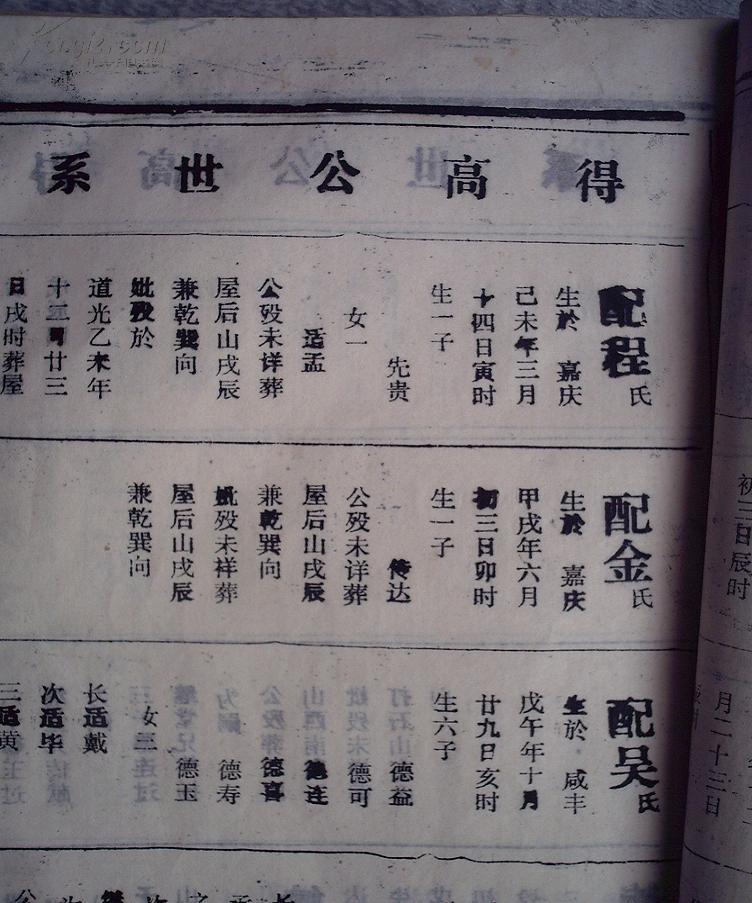 得高公世系
配程氏
生於 嘉庆
己未年三月
十四日寅时
生一子
先贵
女一
适孟
公殁未详葬
屋后山戌辰
兼乾巽向
妣殁於
道光乙未年
十二月廿三
日戌时葬屋
配金氏
生於 嘉庆
甲戌年六月
初三日卯时
生一子
传达
公殁未详葬
屋后山戌辰
兼乾巽向
妣殁未祥葬
屋后山戌辰
兼乾巽向
配吴氏
生於 咸丰
戊午年十月
廿九日亥时
生六子
德益
德可
德连
德喜
德寿
德玉
女三
长适戴
次适毕
三适黄
初三日辰时
月二十三日